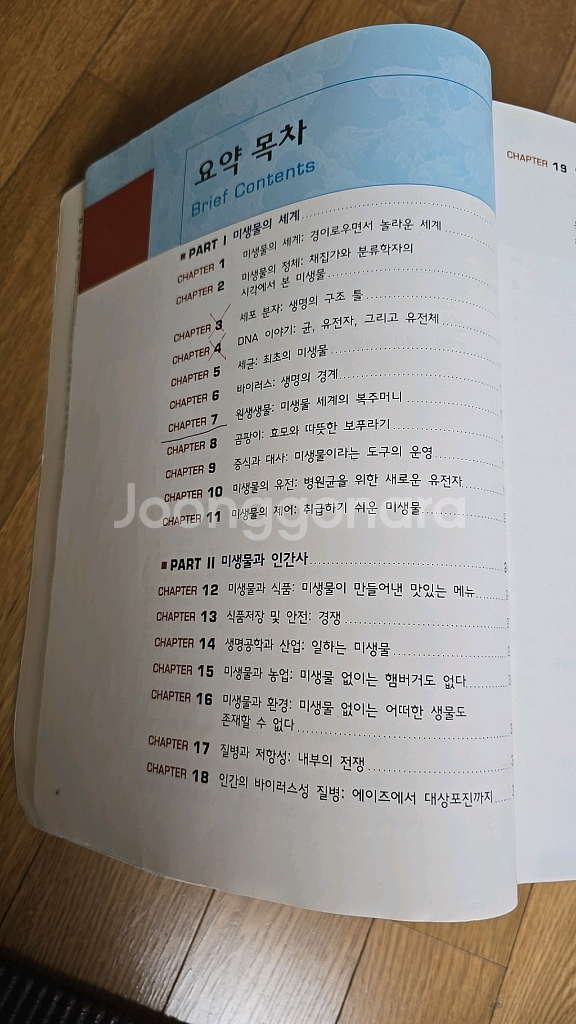 요약 목차
Brief Contents
PART I 미생물의 세계
CHAPTER 1 미생물의 세계: 경이로우면서 놀라운 세계
CHAPTER 2 미생물의 정체: 채집가와 분류학자의
시각에서 본 미생물
CHAPTER 3 세포 분자: 생명의 구조 틀
CHAPTER 4 DNA 이야기: 균, 유전자, 그리고 유전체
CHAPTER 5 세균: 최초의 미생물
CHAPTER 6 바이러스: 생명의 경계
CHAPTER 7 원생생물: 미생물 세계의 복주머니
CHAPTER 8 곰팡이: 효모와 따뜻한 보푸라기
CHAPTER 9 증식과 대사: 미생물이라는 도구의 운영
CHAPTER 10 미생물의 유전: 병원균을 위한 새로운 유전자
CHAPTER 11 미생물의 제어: 취급하기 쉬운 미생물
PART II 미생물과 인간사
CHAPTER 12 미생물과 식품: 미생물이 만들어낸 맛있는 메뉴
CHAPTER 13 식품저장 및 안전: 경쟁
CHAPTER 14 생명공학과 산업: 일하는 미생물
CHAPTER 15 미생물과 농업: 미생물 없이는 햄버거도 없다
CHAPTER 16 미생물과 환경: 미생물 없이는 어떠한 생물도
존재할 수 없다
CHAPTER 17 질병과 저항성: 내부의 전쟁
CHAPTER 18 인간의 바이러스성 질병: 에이즈에서 대상포진까지
CHAPTER 19
Joonggonara